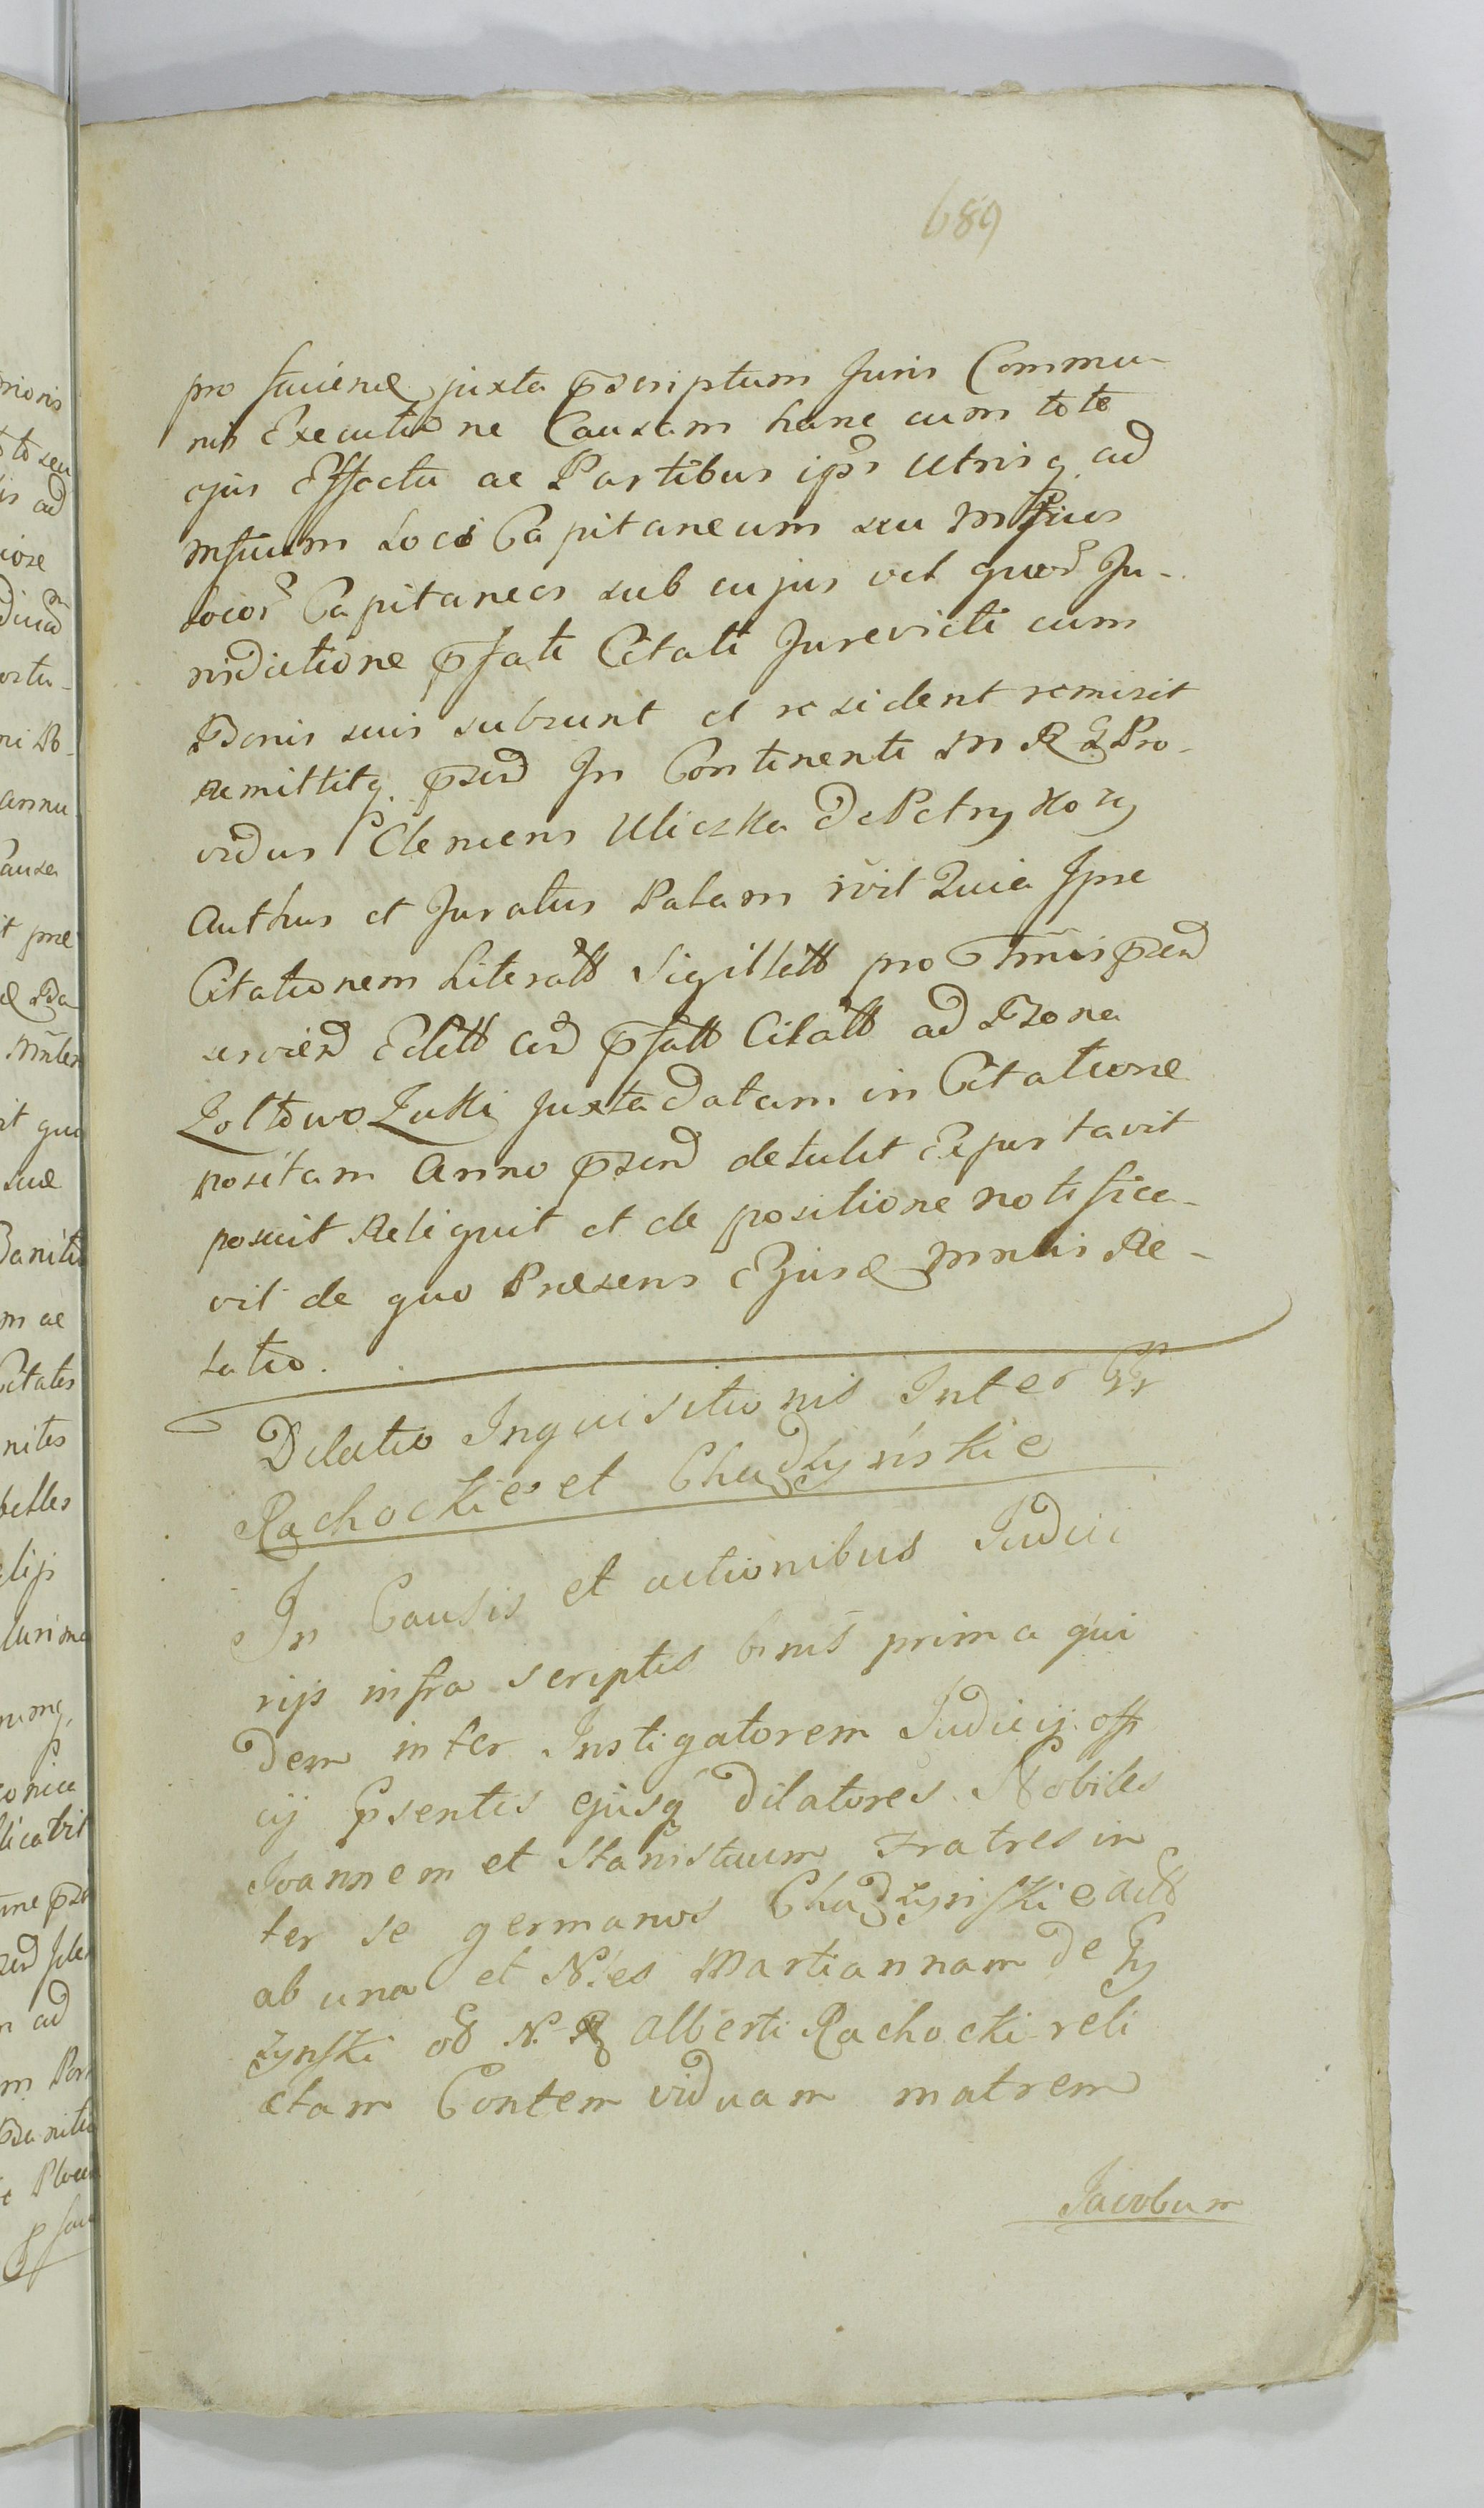 689
pro faciend juxta pscriptum Juris Commu-
nis Executione Causam hanc cum toto
ejus Effectu ac Partibus ips Utrisq ad
Mfcum Loci Capitaneum seu Mfcus
Locor Capitaneos sub cujus vel quor Ju-
risdictione pfati Citati Jurevicti cum
Bonis suis subsunt et resident remisit
remittitq psnd In Continenti M R Pro-
vidus Clemens Uliczka de Petrykozy
Authus et Juratus Palam rvit Quia Ipse
Citationem Literatt Sigillatt pro Tmis psnd
serviend Editt ad pfatt Citatt ad Bona
Zoltowo Zukki juxta datam in Citatione
positam Anno psnd detulit Exportavit
posuit Reliquit et de positione notifica-
vit de quo Presens Ejusd Mnlis Re-
latio.
Dilatio Inquisitionis Inter
Rachockie et Chądzyńskie
In Causis et actionibus Judici
rijs infra scriptis binis prima qui
dem inter Instigatorem Judicij offi
cij Psentis ejusq Dilatores Nobiles
Joannem et Stanislaum Fratres in
ter se germanos Chądzynskie Actt
ab una et N.les Martiannam de
zynski N. Alberti Rachocki reli
ctam Contem viduam matrem
Jacobum